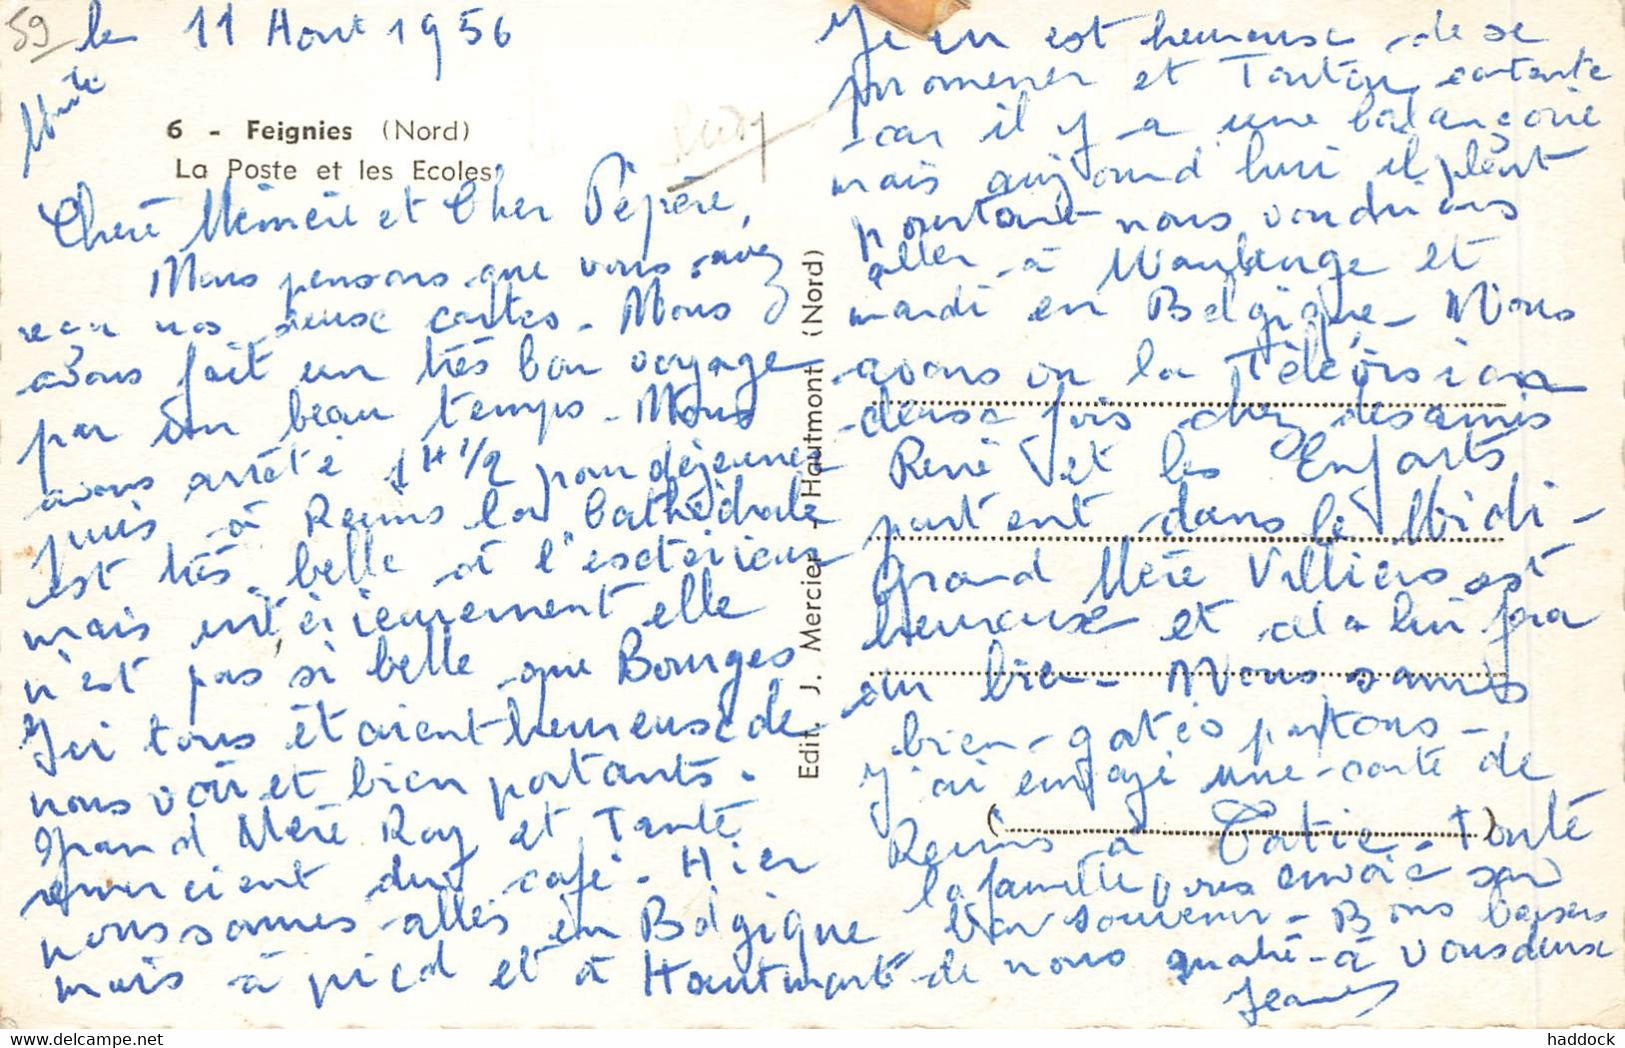 59
le 11 Aout 1956
6 - Feignies (Nord)
La Poste et les Ecoles
Chère Mémère et Cher Pépère,
Nous pensons que vous avez
reçu nos deux cartes. Nous
avons fait un très bon voyage
par un beau temps. Nous
avons arrêté 1H 1/2 pour déjeuner
puis à Reims la Cathédrale
est très belle à l'exterieur
mais intérieurement elle
n'est pas si belle que Bourges
Ici tous étaient heureuse de
nous voir et bien portants.
Grand Mère Ray et Tante
remercient du café. Hier
nous sommes allés en Belgique
mais à pied et à Hautmont
Edit. J. Mercier - Hautmont (Nord)
Je en est heureuse de se
promener et Tonton contente
car il y a une balançoire
mais aujourd hui il pleut
pourtant nous voudrions
aller à Maubeuge et
mardi en Belgique. Nous
avons vu la Télévision
deux fois chez des amis
René et les Enfants
partent dans le Midi -
Grand Mère Villiers est
heureuse et cela lui fera
du bien - Nous sommes
bien gatés partout -
J'ai envoyé une carte de
Reims à Tatie. Toute
la famille vous envoie son
bon souvenir - Bons baisers
de nous quatre à vous deux